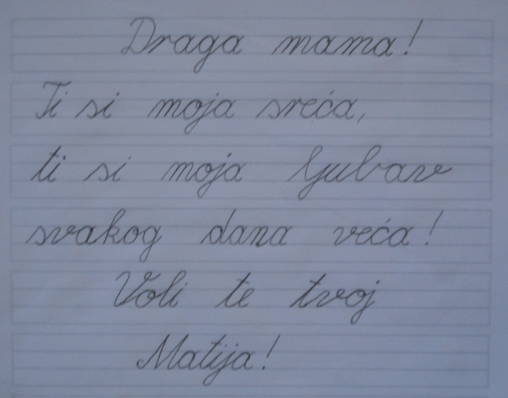 Draga mama!
Ti si moja sreća,
ti si moja ljubav
svakog dana veća!
Voli te tvoj
Matija!